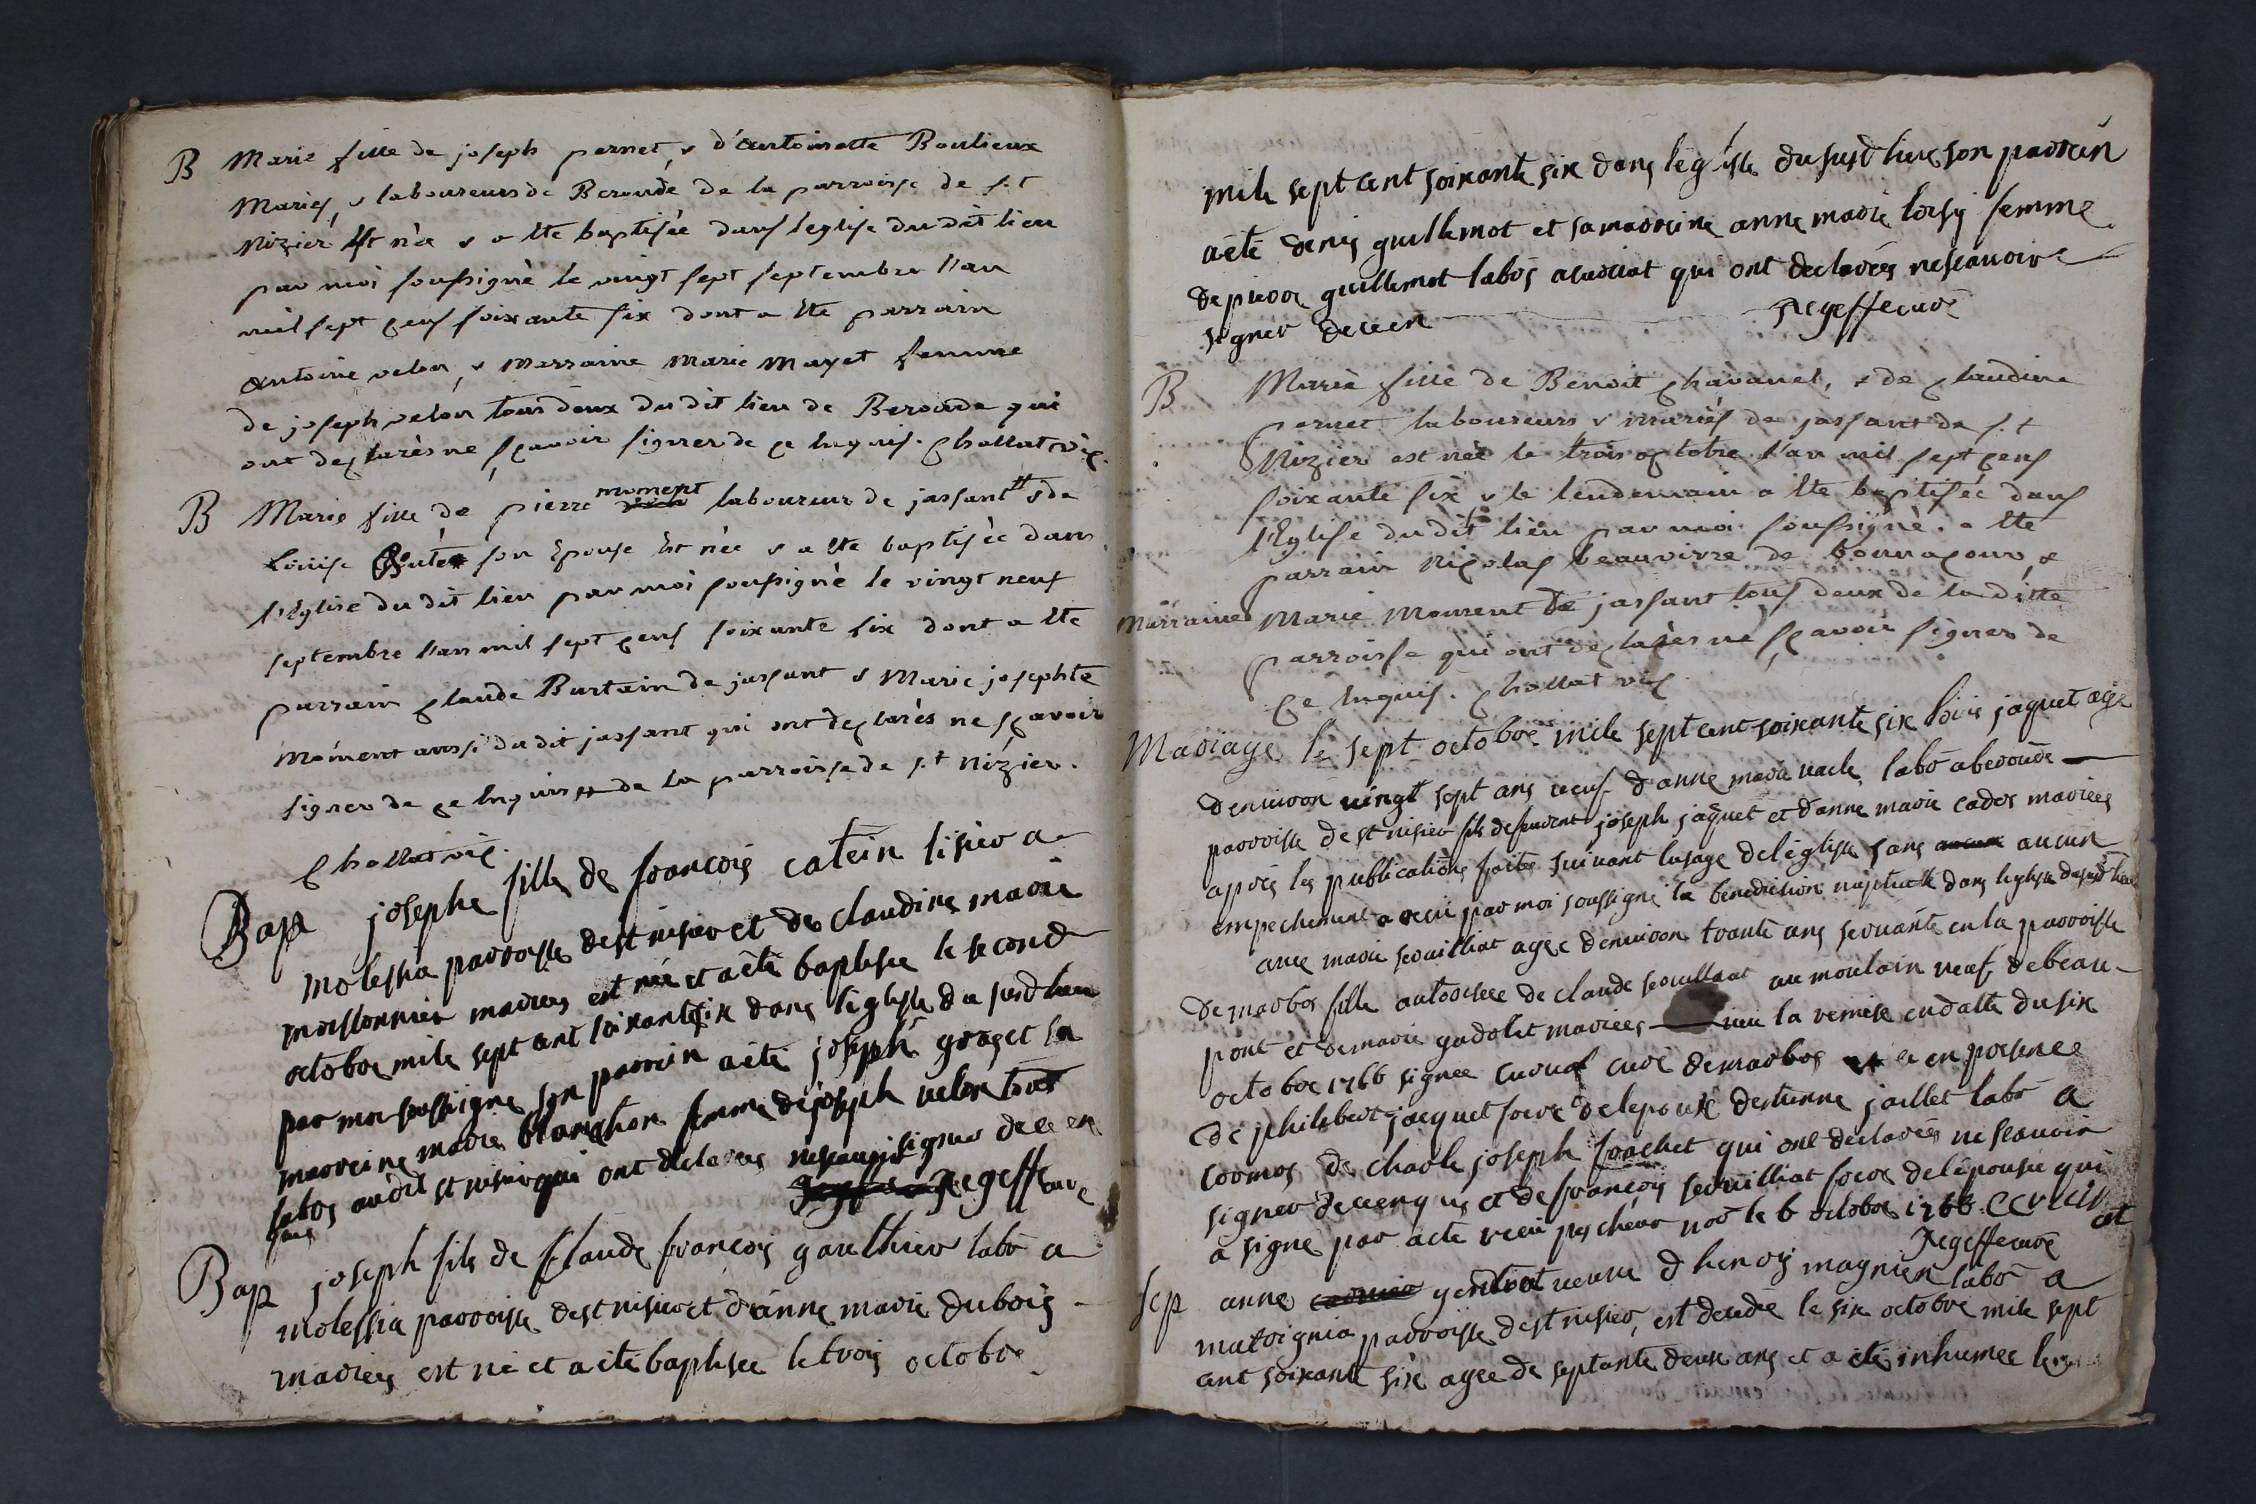 B Marie fille de joseph pernet, & d'antoinette Boulieux
Mariés, & laboureurs de Beroude de la parroisse de s.t
Nizier Est née & a Ete baptisée dans leglise du dit lieu
par moi soussigné le vingt sept septembre l'an
mil sept cens soixante six dont a Ete parrain
antoine velon, & Marraine Marie Mayet femme
de joseph velon tous deux du dit lieu de Beroude qui
ont declarès ne sçavoir signer de ce Enquis. Chollat vic.
B Marie fille de pierre moment laboureur de jassant & de
Louise son Epouse Est née & a Ete baptisée dans
l'Eglise du dit lieu par moi soussigné le vingt neuf
septembre l'an mil sept cens soixante six dont a Ete
parrain Claude Burtain de jassant & Marie josephte
Moment aussi du dit jassant qui ont declarès ne sçavoir
signer de ce Enquis de la parroisse de s.t Nizier.
Chollat vic.
Bap josephe fille de francois catein tisier a
molessia parroisse de st nisier et de claudine marie
moissonnier mariees est née et a été baptisee le second
octobre mile sept cent soixante six dans l'eglise du susd lieu
par moi soussigne son parrin a été joseph graget sa
marreine marie blanchon femme de joseph velon tous
labos audit st nisier qui ont declarees ne scauoir signer de ce en
quis Regeffe curé
Bap joseph fils de Claude francois gaulthier labo a
molessia parroisse de st nisier et d'anne marie dubois
mariees est né et a été baptisee le trois octobre
mile sept cent soixante six dans l'eglise du susd lieu son parrein
a été denis guillemot et sa marreine anne marie loisy femme
de pierre guillemot labos qui ont declarées ne scauoire
signer de ce en Regeffe curé
B Marie fille de Benoit Chavanel, & de Claudine
pernet laboureurs & mariés de jassant de s.t
Nizier est née le trois octobre l'an mil sept cens
soixante six & le lendemain a Ete baptisée dans
l'Eglise du dit lieu par moi soussigné. a Ete
parrain Nicolas beauvirre de bonnacour, &
Marraine Marie Moment de jassant tous deux de la ditte
parroisse qui ont declarès ne sçavoir signer de
ce Enquis. Chollat vic.
Mariage le sept octobre mile sept cent soixante six louis jaquet age
denuiron vingt sept ans veuf d'anne marie labo a beroude
parroisse de st nisier fils de feuvent joseph jaquet et d'anne marie cador mariees
après les publications faites suivant lusage de léglise sans aucun
empechement a recu par moi soussigné la benediction nuptiale dans leglise du susd lieu
avec marie seruilliat agée denuiron trante ans seruante en la parroisse
de marbos fille autorisee de claude seruilliat au moulain neuf de beau-
pont et de marie gadolet mariees vue la remise en datte du six
octobre 1766 signee curé de marbos et en presence
de philibert jacquet frere de lepoux destienne jaillet labo a
cormos de charle joseph frachet qui ont declarées ne scauoir
signer de ce enquis et de françois seruilliat frere de l'épouse qui
a signe par acte recu pescheur no͞r le 6 octobre 1766.
Regeffe curé
Sep anne gentet veuve d henry magnien labo a
matrignia parroisse de st nisier, est decedée le six octobre mile sept
cent soixante six agee de septante deux ans et a été inhumee le